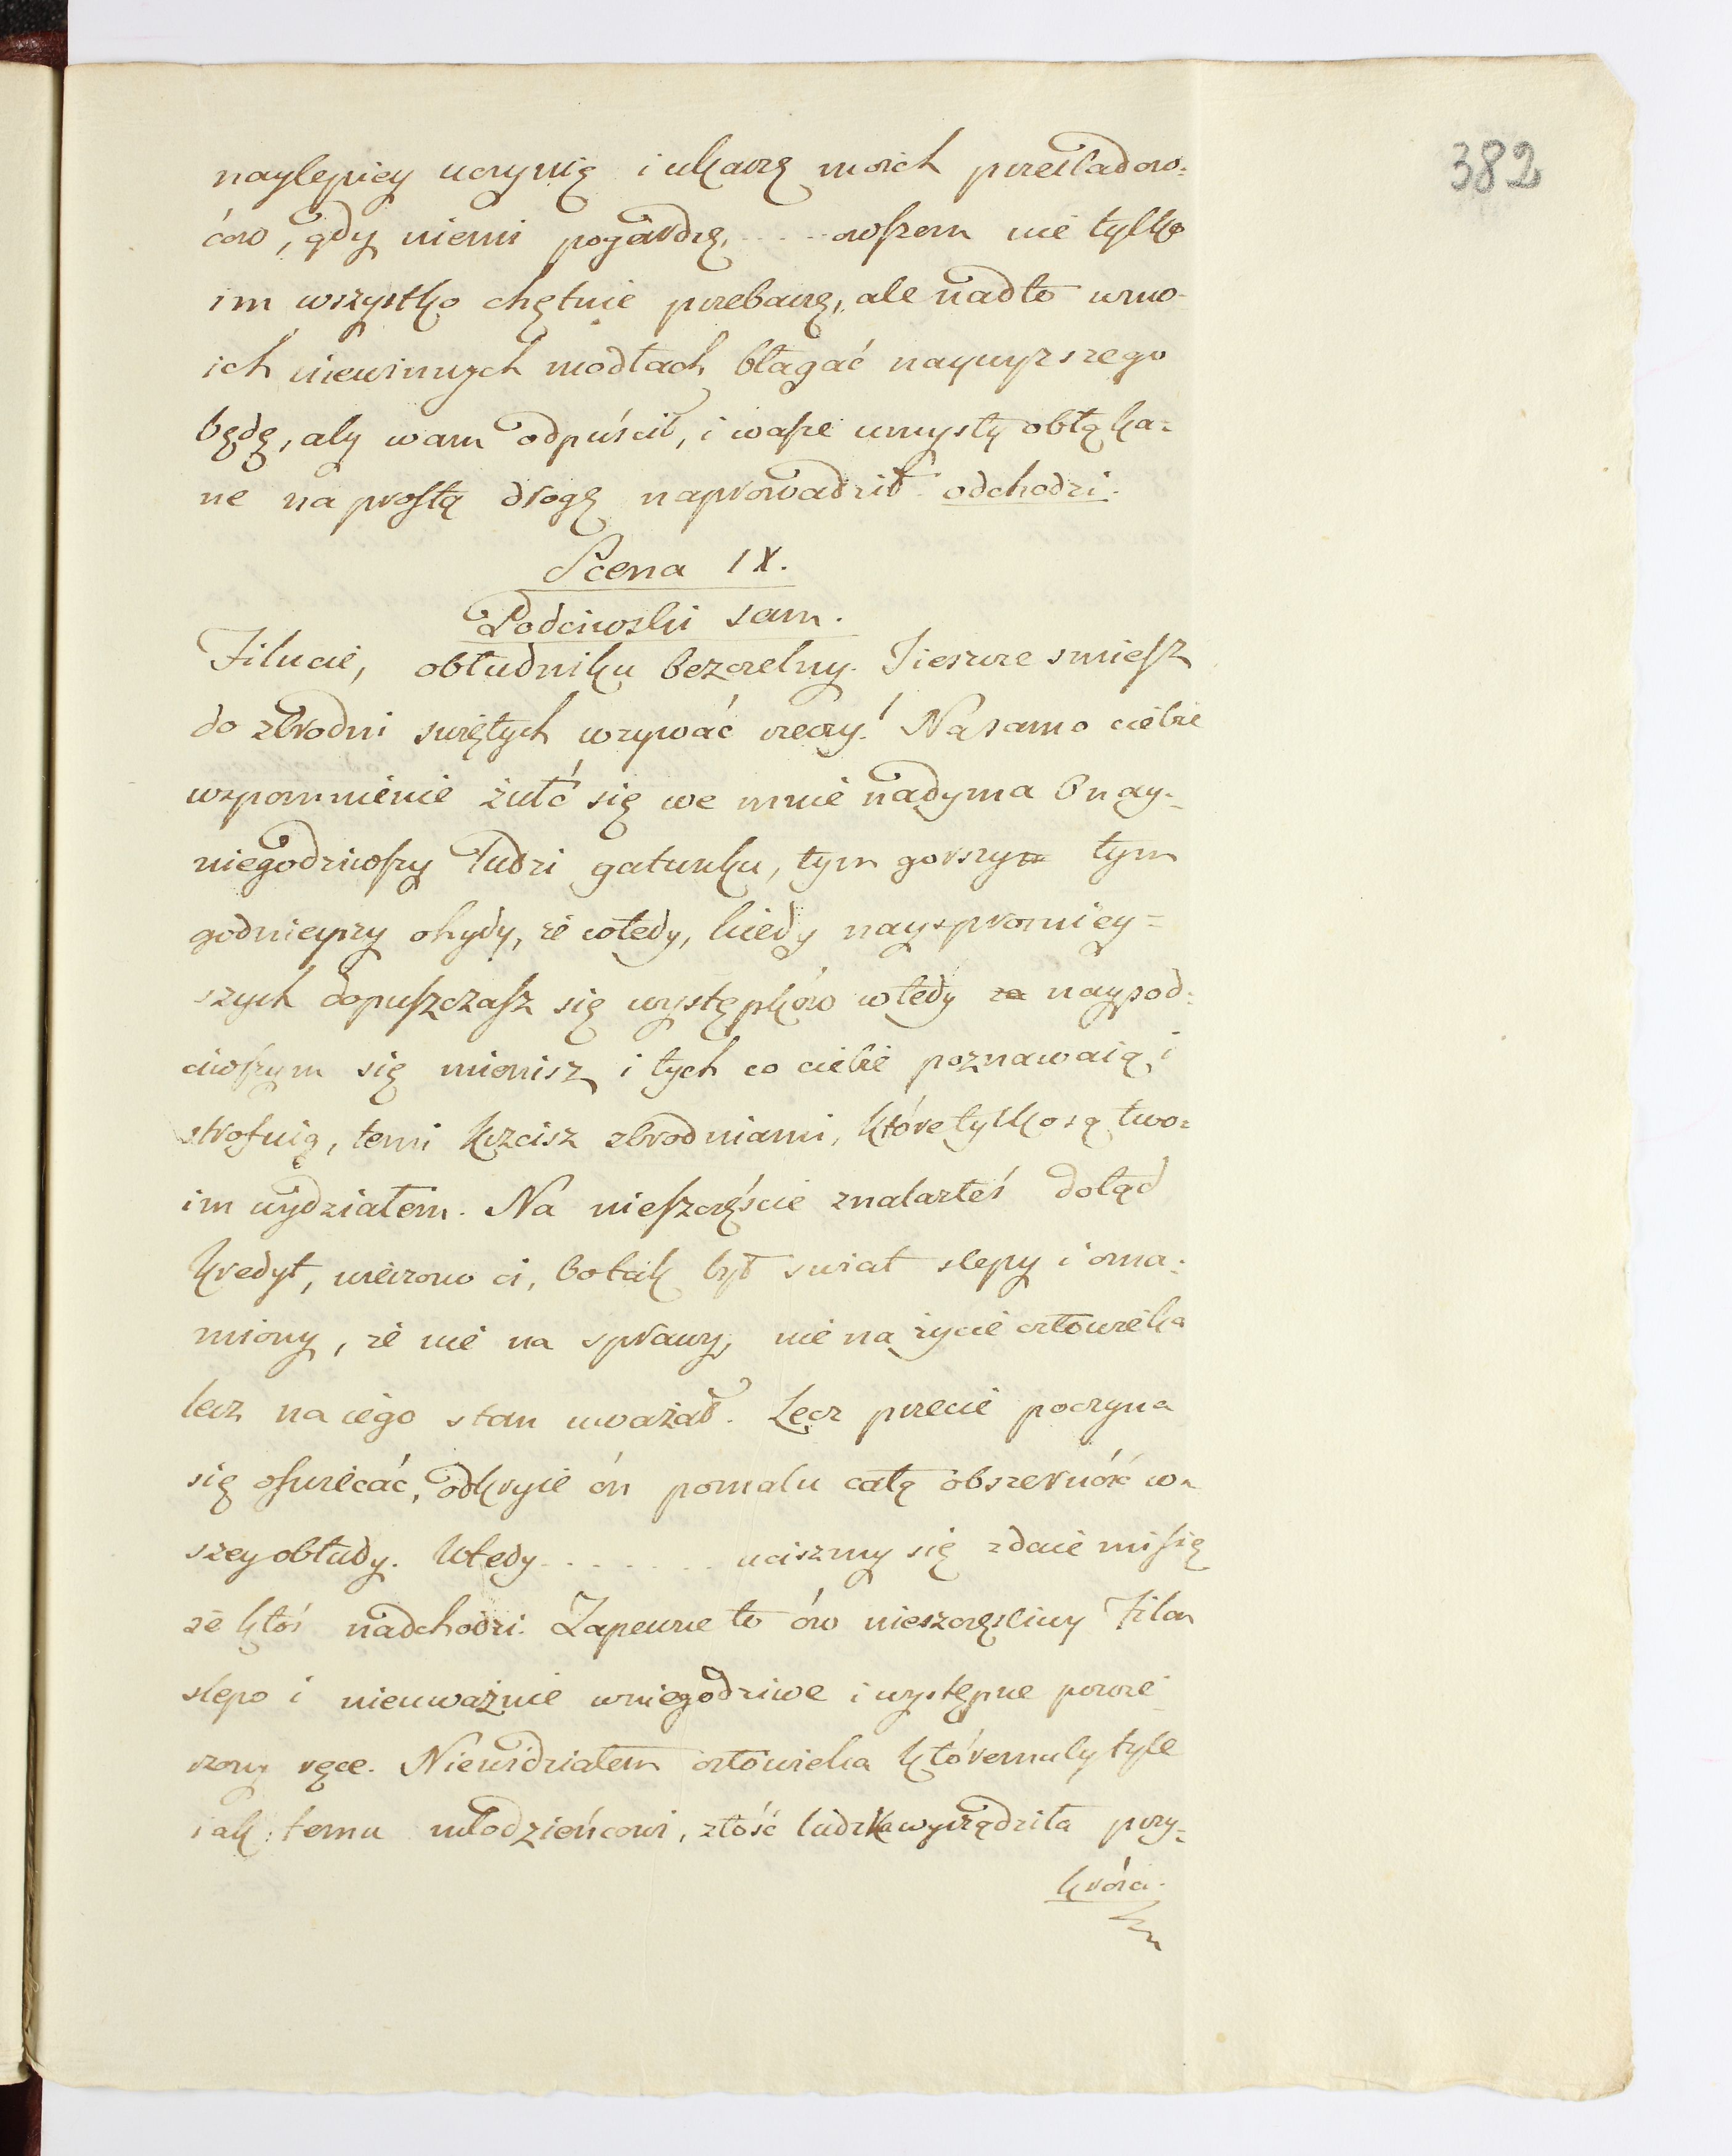 382
naylepiey uczynię i ukarzę moich prześladow=
ców, gdy niemi pogardzę, .... owszem nie tylko
im wszystko chętnie przebaczę, ale nadto w mo-
ich niewinnych modłach błagać naywyższego
będę, aby wam odpuścił, i wasze umysły obłąka=
ne na prostą drogę naprowadził. odchodzi.
Scena IX.
Podciwski sam.
Filucie, obłudniku bezczelny. Jieszcze smiesz
do zbrodni swiętych wzywać rzeczy! Na samo ciebie
wzpomnienie żułć się we mnie nadyma O nay-
niegodziwszy ludzi gatunku, tym gorszy tym
godnieyszy ohydy, że wtedy, kiedy naysprosniey=
szych dopuszczasz się występków wtedy za naypod=
ciwszym się mienisz i tych co ciebie poznawaią i
strofuią, temi krzcisz zbrodniami, które tylko są two=
im wydziałem. Na nieszczęście znalazłeś dotąd
kredyt, wierzono ci, bo tak był swiat slepy i oma=
miony, że nie na sprawy, nie na życie człowieka
lecz na iego stan uważał. Lecz przecie poczyna
się oswiecać, odkryie on pomału całą obszerność wa
szey obłudy. Wtedy ....... uciszmy się zdaie mi się
że ktoś nadchodzi. Zapewne to ów nieszczęsliwy Filon
slepo i nieuważnie w niegodziwe i występne powie-
rzony ręce. Niewidziałem człowieka któremuby tyle
iak temu młodzieńcowi, złość ludzka wyrządziła przy=
króści.